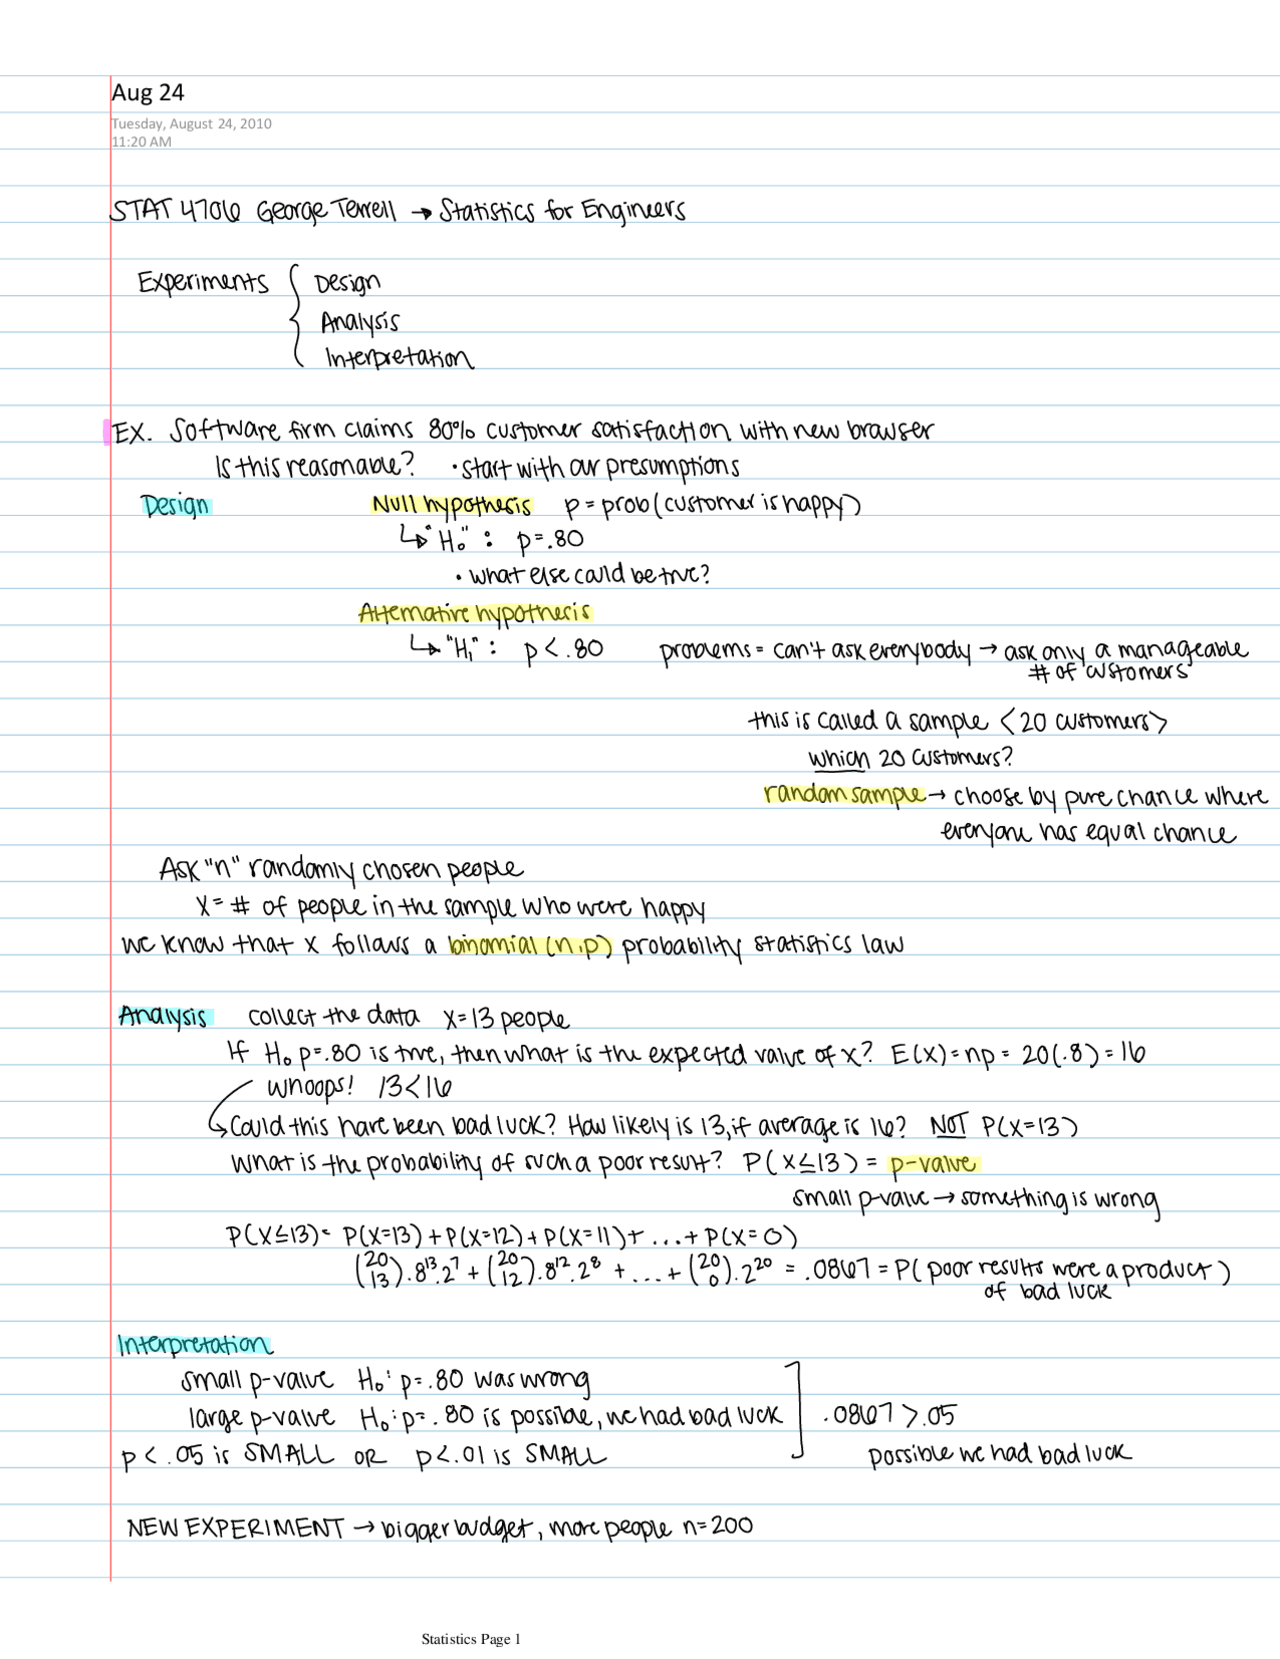 Aug 24
Tuesday, August 24, 2010
11:20 AM
STAT 4706 George Terrell → Statistics for Engineers
Experiments { Design
Analysis
Interpretation
EX. Software firm claims 80% customer satisfaction with new browser
Is this reasonable? • start with our presumptions
Design Null hypothesis p = prob(customer is happy)
↳ "H₀" : p = .80
• what else could be true?
Alternative hypothesis
↳ "H₁" : p < .80 problems = can't ask everybody → ask only a manageable
# of customers
this is called a sample <20 customers>
which 20 customers?
random sample → choose by pure chance where
everyone has equal chance
Ask "n" randomly chosen people
X = # of people in the sample who were happy
we know that x follows a binomial (n,p) probability statistics law
Analysis collect the data X=13 people
If H₀ p=.80 is true, then what is the expected value of x? E(x)=np = 20(.8) = 16
whoops! 13<16
↳ Could this have been bad luck? How likely is 13, if average is 16? NOT P(X=13)
What is the probability of such a poor result? P(X≤13) = p-value
small p-value → something is wrong
P(X≤13) = P(X=13) + P(X=12) + P(X=11) + ... + P(X=0)
(20 13) .8¹³ .2⁷ + (20 12) .8¹² .2⁸ + ... + (20 0) .2²⁰ = .0867 = P(poor results were a product)
of bad luck
Interpretation
small p-value H₀: p=.80 was wrong
large p-value H₀: p=.80 is possible, we had bad luck ] .0867 > .05
p < .05 is SMALL OR p<.01 is SMALL possible we had bad luck
NEW EXPERIMENT → bigger budget, more people n=200
Statistics Page 1